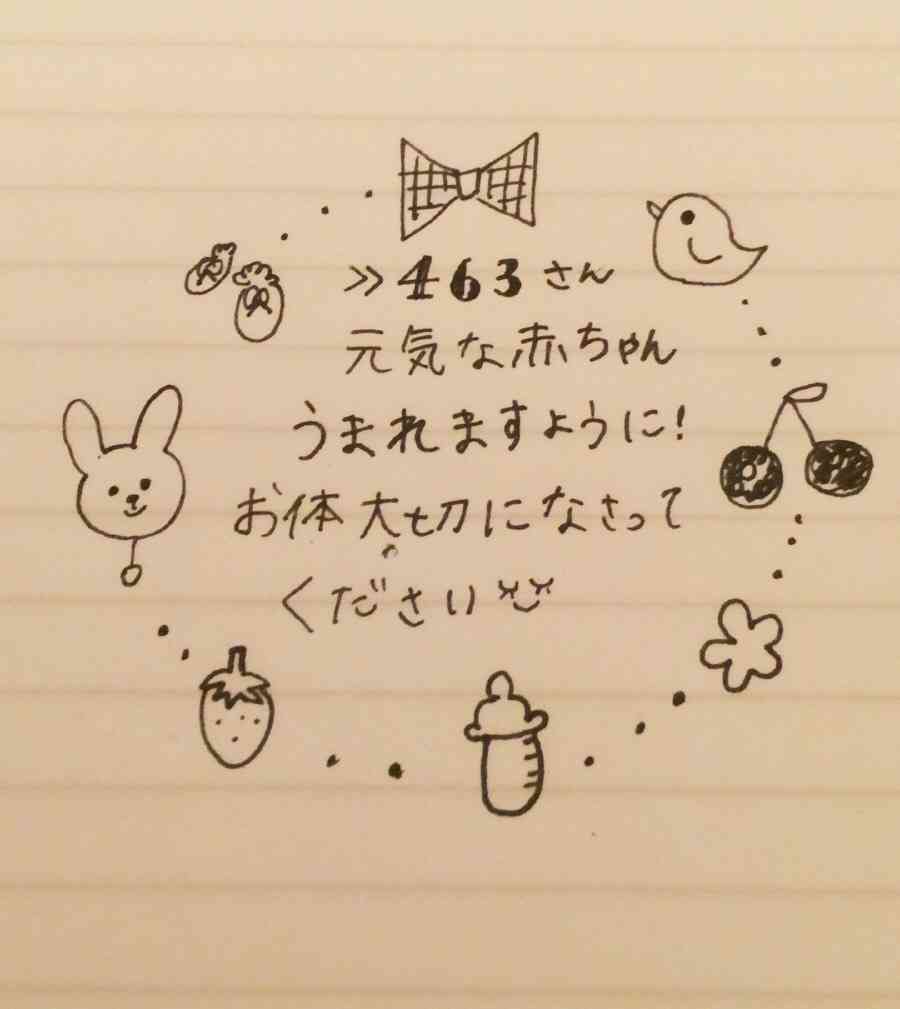 >>463さん
元気な赤ちゃん
うまれますように!
お体大切になさって
ください